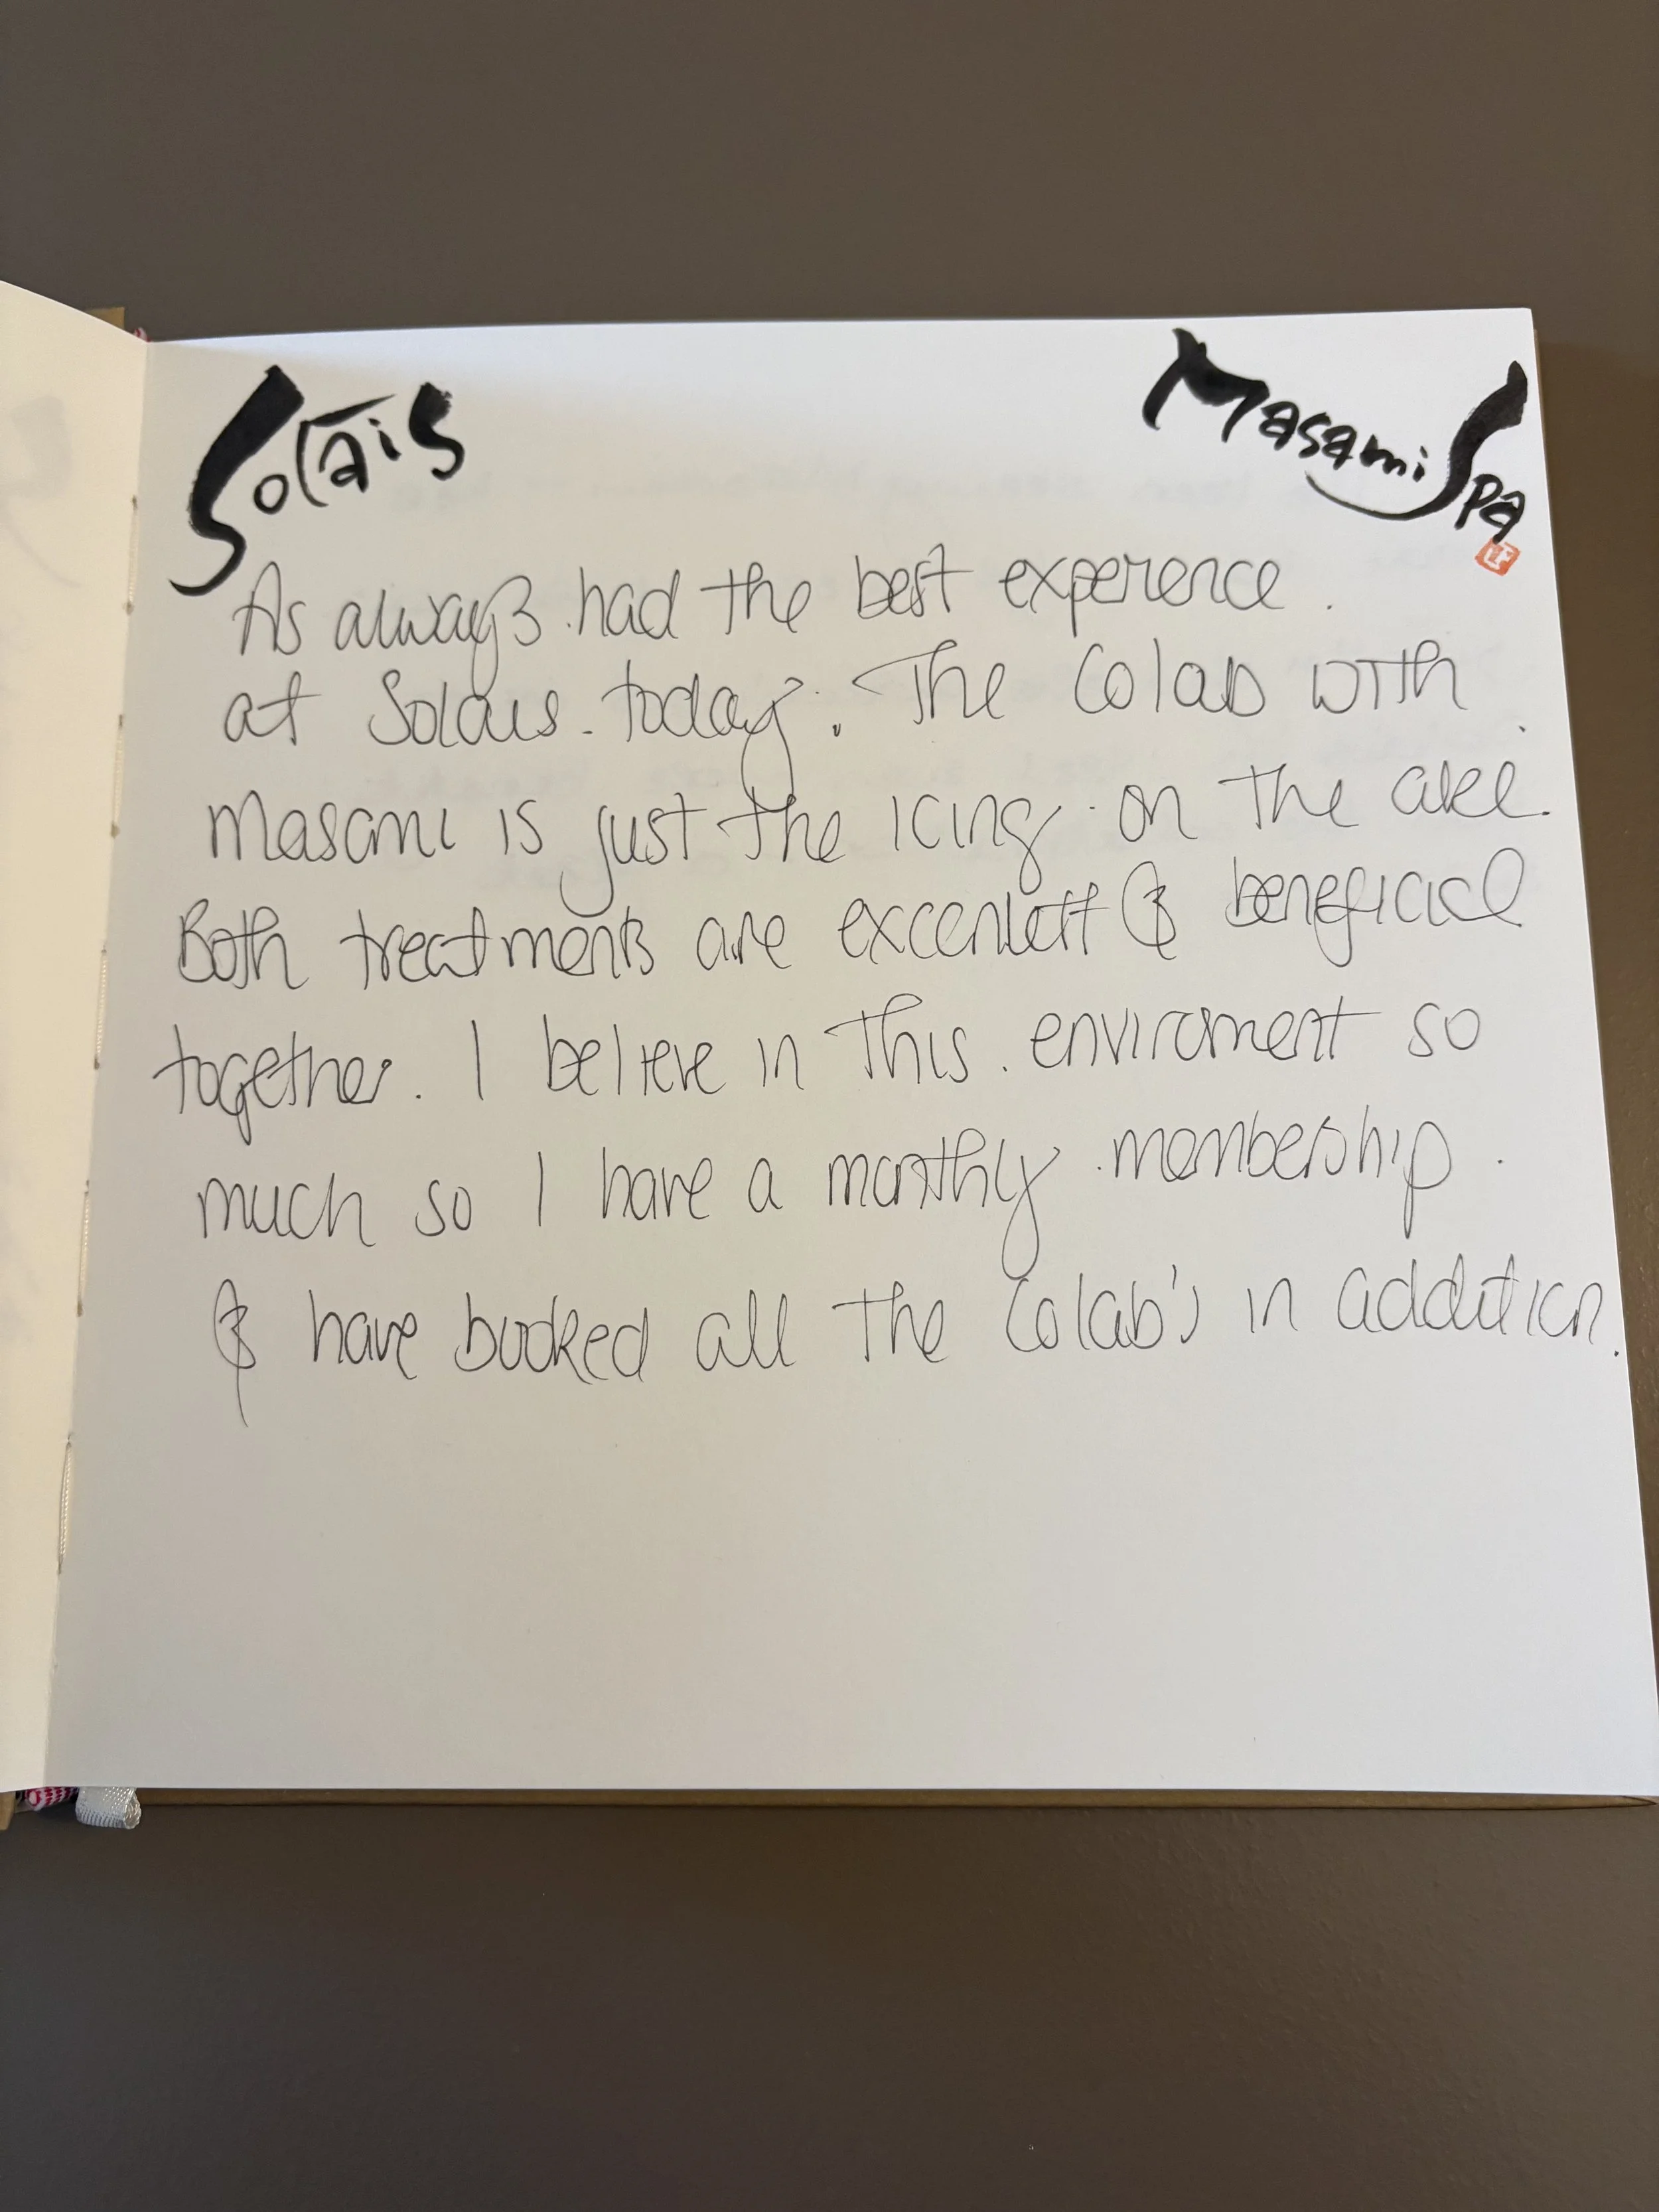 Solais
Masami Spa
As always had the best experence.
at Solais today. The Colab with
masami is just the icing on the cake.
Both treatments are & beneficial
together. I believe in this enviroment so
much so I have a monthly membership
& have booked all the Colab's in addition.